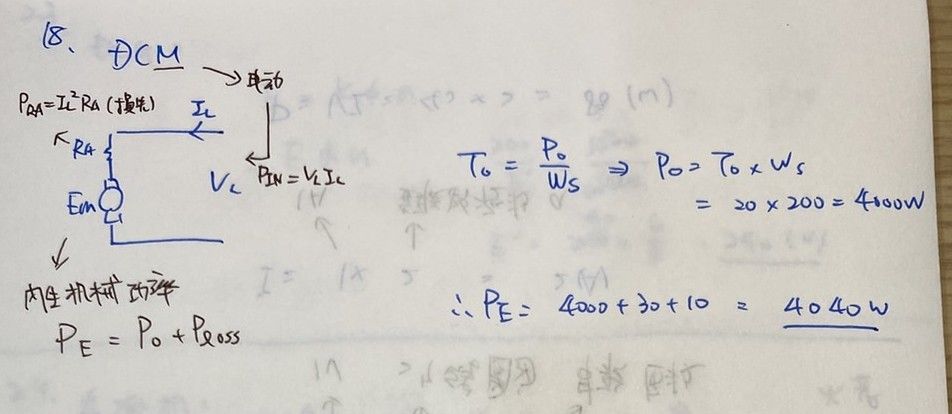 18、 DCM
→ 电动
P_RA = I_L² R_A (損失)
I_L
R_A
V_L
P_IN = V_L I_L
E_m
内生机械功率
P_E = P_o + P_loss
T_o = P_o / W_s ⇒ P_o = T_o × W_s
= 20 × 200 = 4000W
∴ P_E = 4000 + 30 + 10 = 4040W